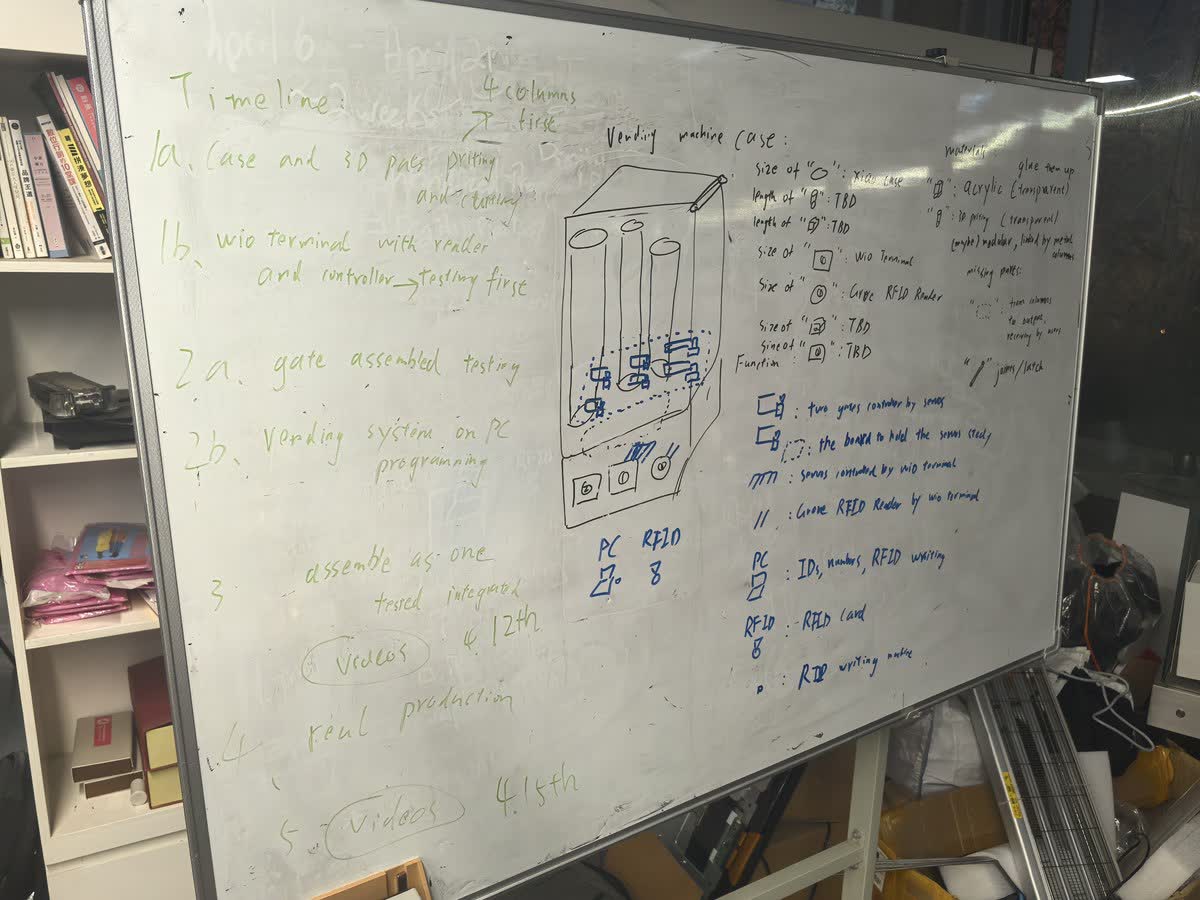 Timeline:
4 columns
first
1a. Case and 3D pats priting
and cutting
1b. wio terminal with render
and controller → testing first
2a. gate assembled testing
2b. Vending system on PC
programming
3. assemble as one
tested integrated
videos 4.12th
4. real production
5. videos 4.15th
Vending machine case:
size of " ": xiao case
length of " ": TBD
length of " ": TBD
size of " 1 ": Wio Terminal
size of " ": Grove RFID Reader
size of " ": TBD
size of " ": TBD
Function:
: two gates controller by servos
: the board to hold the servos stedy
: servos controlled by wio terminal
// : Grove RFID Reader by wio terminal
PC : IDs, numbers, RFID writing
RFID : RFID card
: RFID writing machine
materials:
glue them up
" ": acrylic (transparent)
" ": 3D priting (transparent)
(maybe) modular, linked by metal
columns
missing parts:
" ": from columns
to bottom,
receiving by users.
" ": joints/latch
2 1
PC RFID